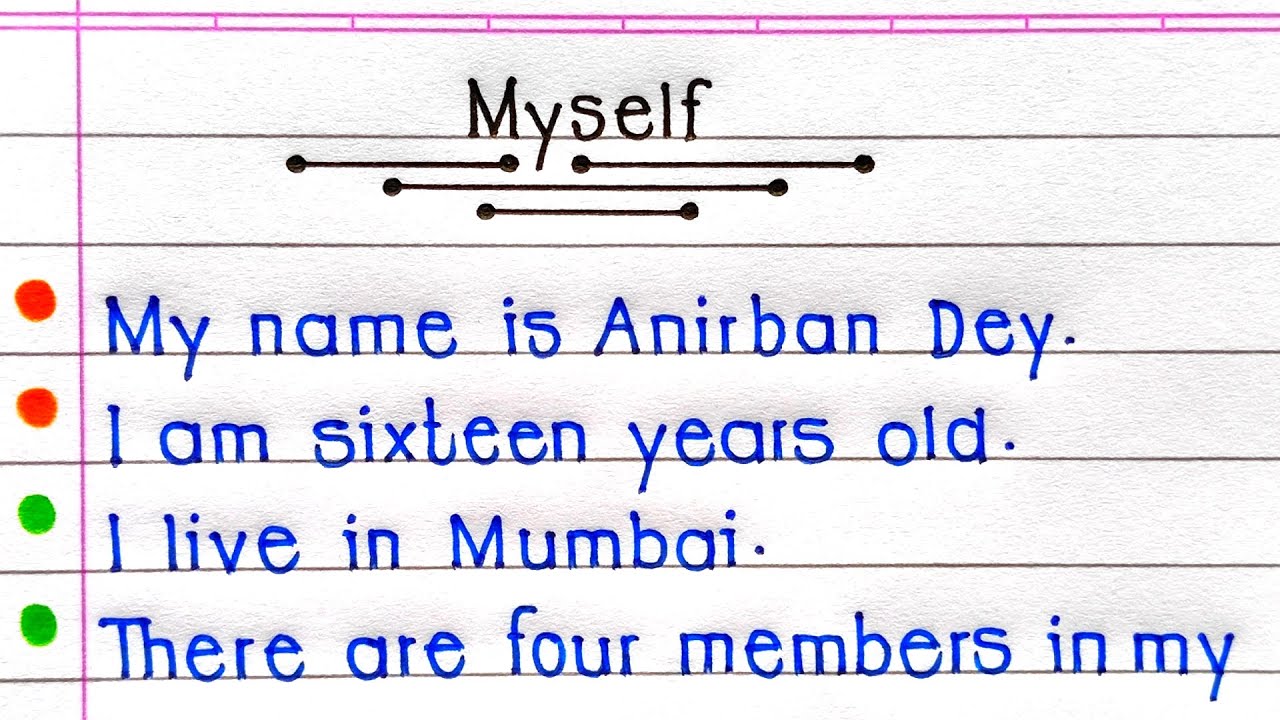 Myself
My name is Anirban Dey.
I am sixteen years old.
I live in Mumbai.
There are four members in my